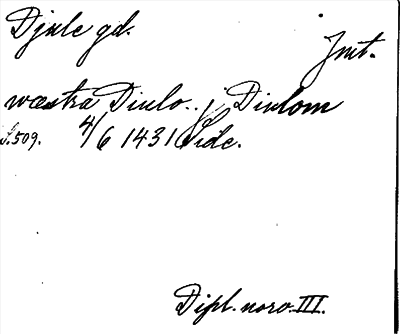 Djule gd.
Jmt.
wæstra Diulo.. j Diulom
S. 509. 4/6 1431 Side.
Dipl. norv. III.